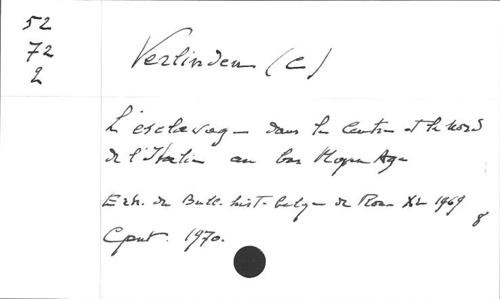 52
72
2
Verlinden (C)
L'esclavage dans le Centre et le Nord
de l'Italie au bas Moyen Age
Extr. de Bull. hist. belge de Rome XL 1969
8
1970.